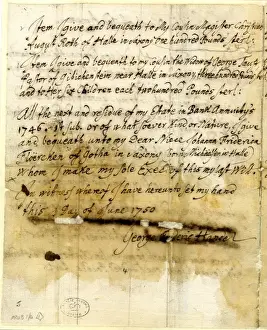 Item I give and bequeath to My Cousin Magister Christian
August Roth of Halle in Saxony one hundred Pounds Sterl:
Item I give and bequeath to my Cousin the Widow of George
Pastor of in Saxony three hundred Pounds
and to her Six Children each two hundred Pounds Sterl:
All the next and residue of my Estate in Bank Annuity's
1746. or of what soever Kind or Nature, I give
and bequeath unto my Dear Niece Johanna Friderica
Floerchen of Gotha in Saxony born Michaelsen in Halle
whom I make my Sole Exec: of this my last Will.
In witness whereof I have hereunto set my hand
this 1 Day of June 1750
George Handel